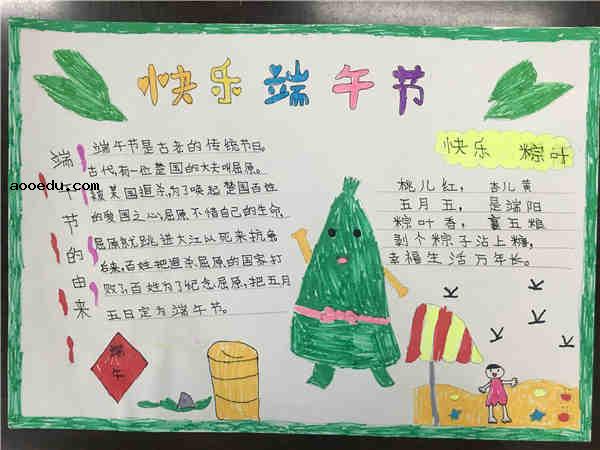 快乐端午节
端午节的由来
aooedu.com
端午节是古老的传统节日。
古代,有一位楚国的大夫叫屈原。
被某国追杀,为了唤起楚国百姓
的爱国之心,屈原不惜自己的生命,
屈原就跳进大江以死来抗争
后来,百姓把追杀屈原的国家打
败了,百姓为了纪念屈原,把五月
五日定为端午节。
快乐 粽叶
桃儿红, 杏儿黄
五月五, 是端阳
粽叶香, 裹五粮
剥个粽子沾上糖,
幸福生活万年长。
端午